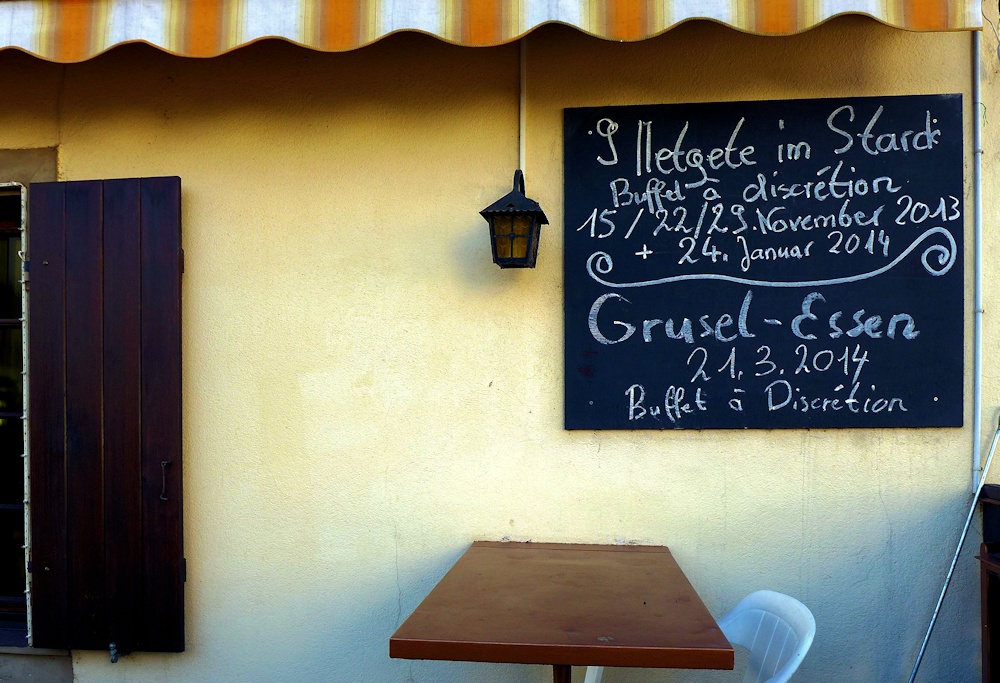 9 Metgete im Starck
Buffet à discrétion
15/22/29. November 2013
+ 24. Januar 2014
Grusel-Essen
21.3.2014
Buffet à Discrétion